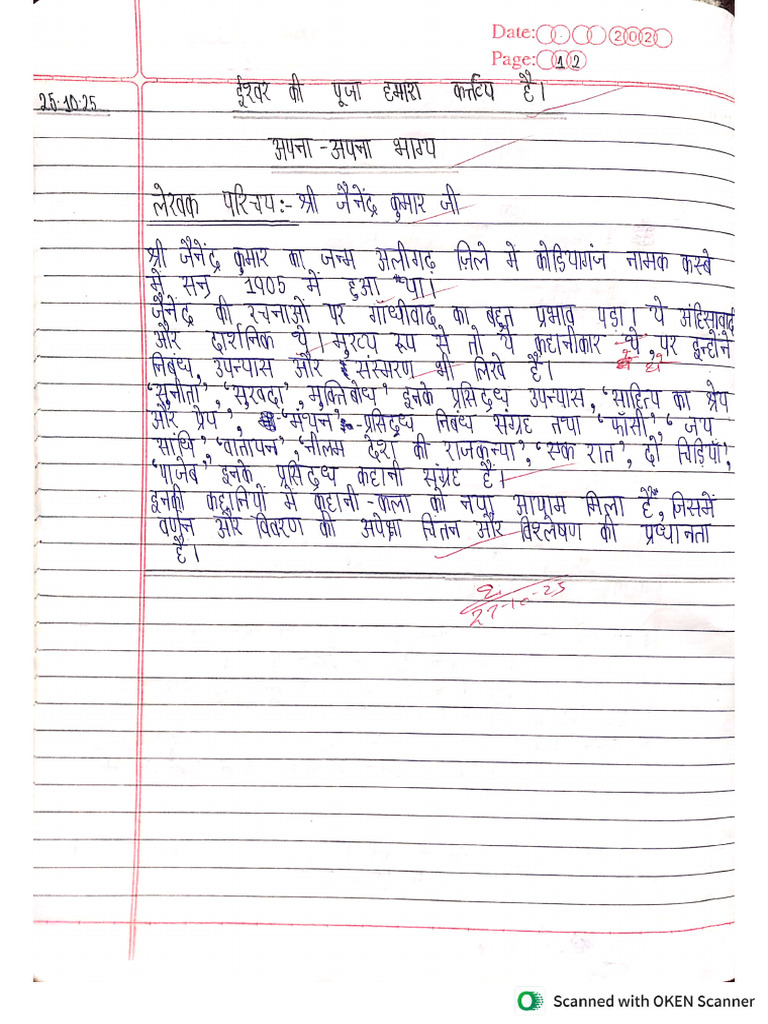 Date: 202
Page: 12
ईश्वर की पूजा हमारा कर्त्तव्य है।
25.10.25
अपना - अपना भाग्य
लेखक परिचय:- श्री जैनेंद्र कुमार जी
श्री जैनेंद्र कुमार का जन्म अलीगढ़ जिले में कोडियागंज नामक कस्बे
में सन् 1905 में हुआ था।
जैनेंद्र की रचनाओं पर गाँधीवाद का बहुत प्रभाव पड़ा। ये अहिंसावादी
और दार्शनिक थे। मुख्य रूप से तो ये कहानीकार थे, पर इन्होंने
निबंध, उपन्यास और संस्मरण भी लिखे हैं।
'सुनीता', 'सुखदा', मुक्तिबोध' इनके प्रसिद्ध उपन्यास, 'साहित्य का श्रेय
और प्रेय', 'मंथन' प्रसिद्ध निबंध संग्रह तथा 'फाँसी', 'जय
सांधि', 'वातायन', 'नीलम देश की राजकन्या', 'एक रात', दो चिड़ियाँ',
'पाजेब' इनके प्रसिद्ध कहानी संग्रह हैं।
इनकी कहानियों में कहानी - कला को नया आयाम मिला है, जिसमें
वर्णन और विवरण की अपेक्षा चिंतन और विश्लेषण की प्रधानता
है।
27-10-25
Scanned with OKEN Scanner